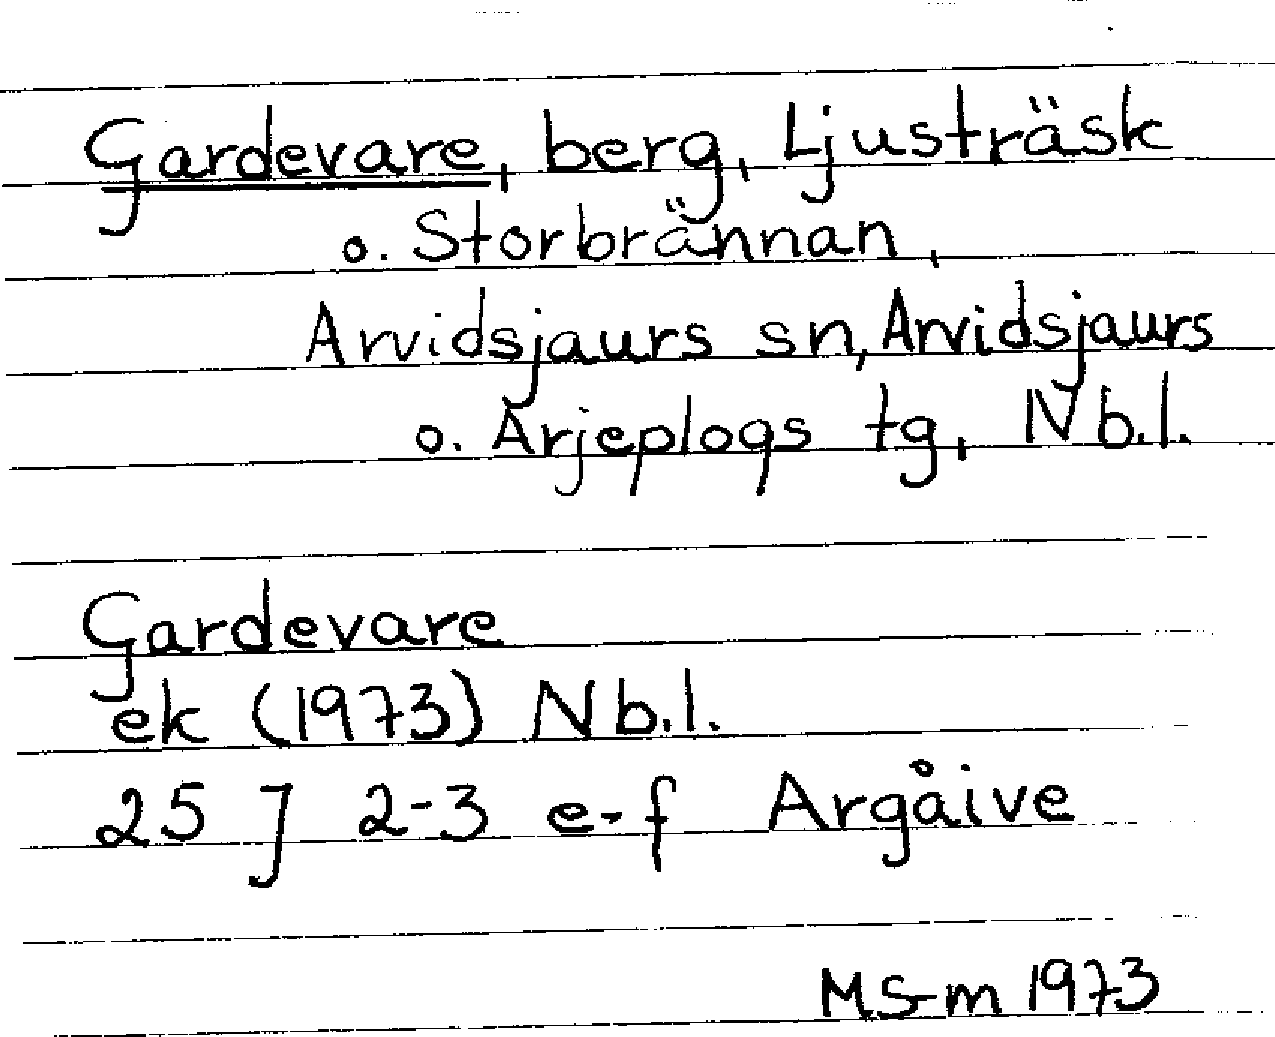 Gardevare, berg, Ljusträsk
o. Storbrännan,
Arvidsjaurs sn, Arvidsjaurs
o. Arjeplogs tg, Nb.l.
Gardevare
ek (1973) Nb.l.
25 J 2-3 e-f Argåive
MS-m 1973